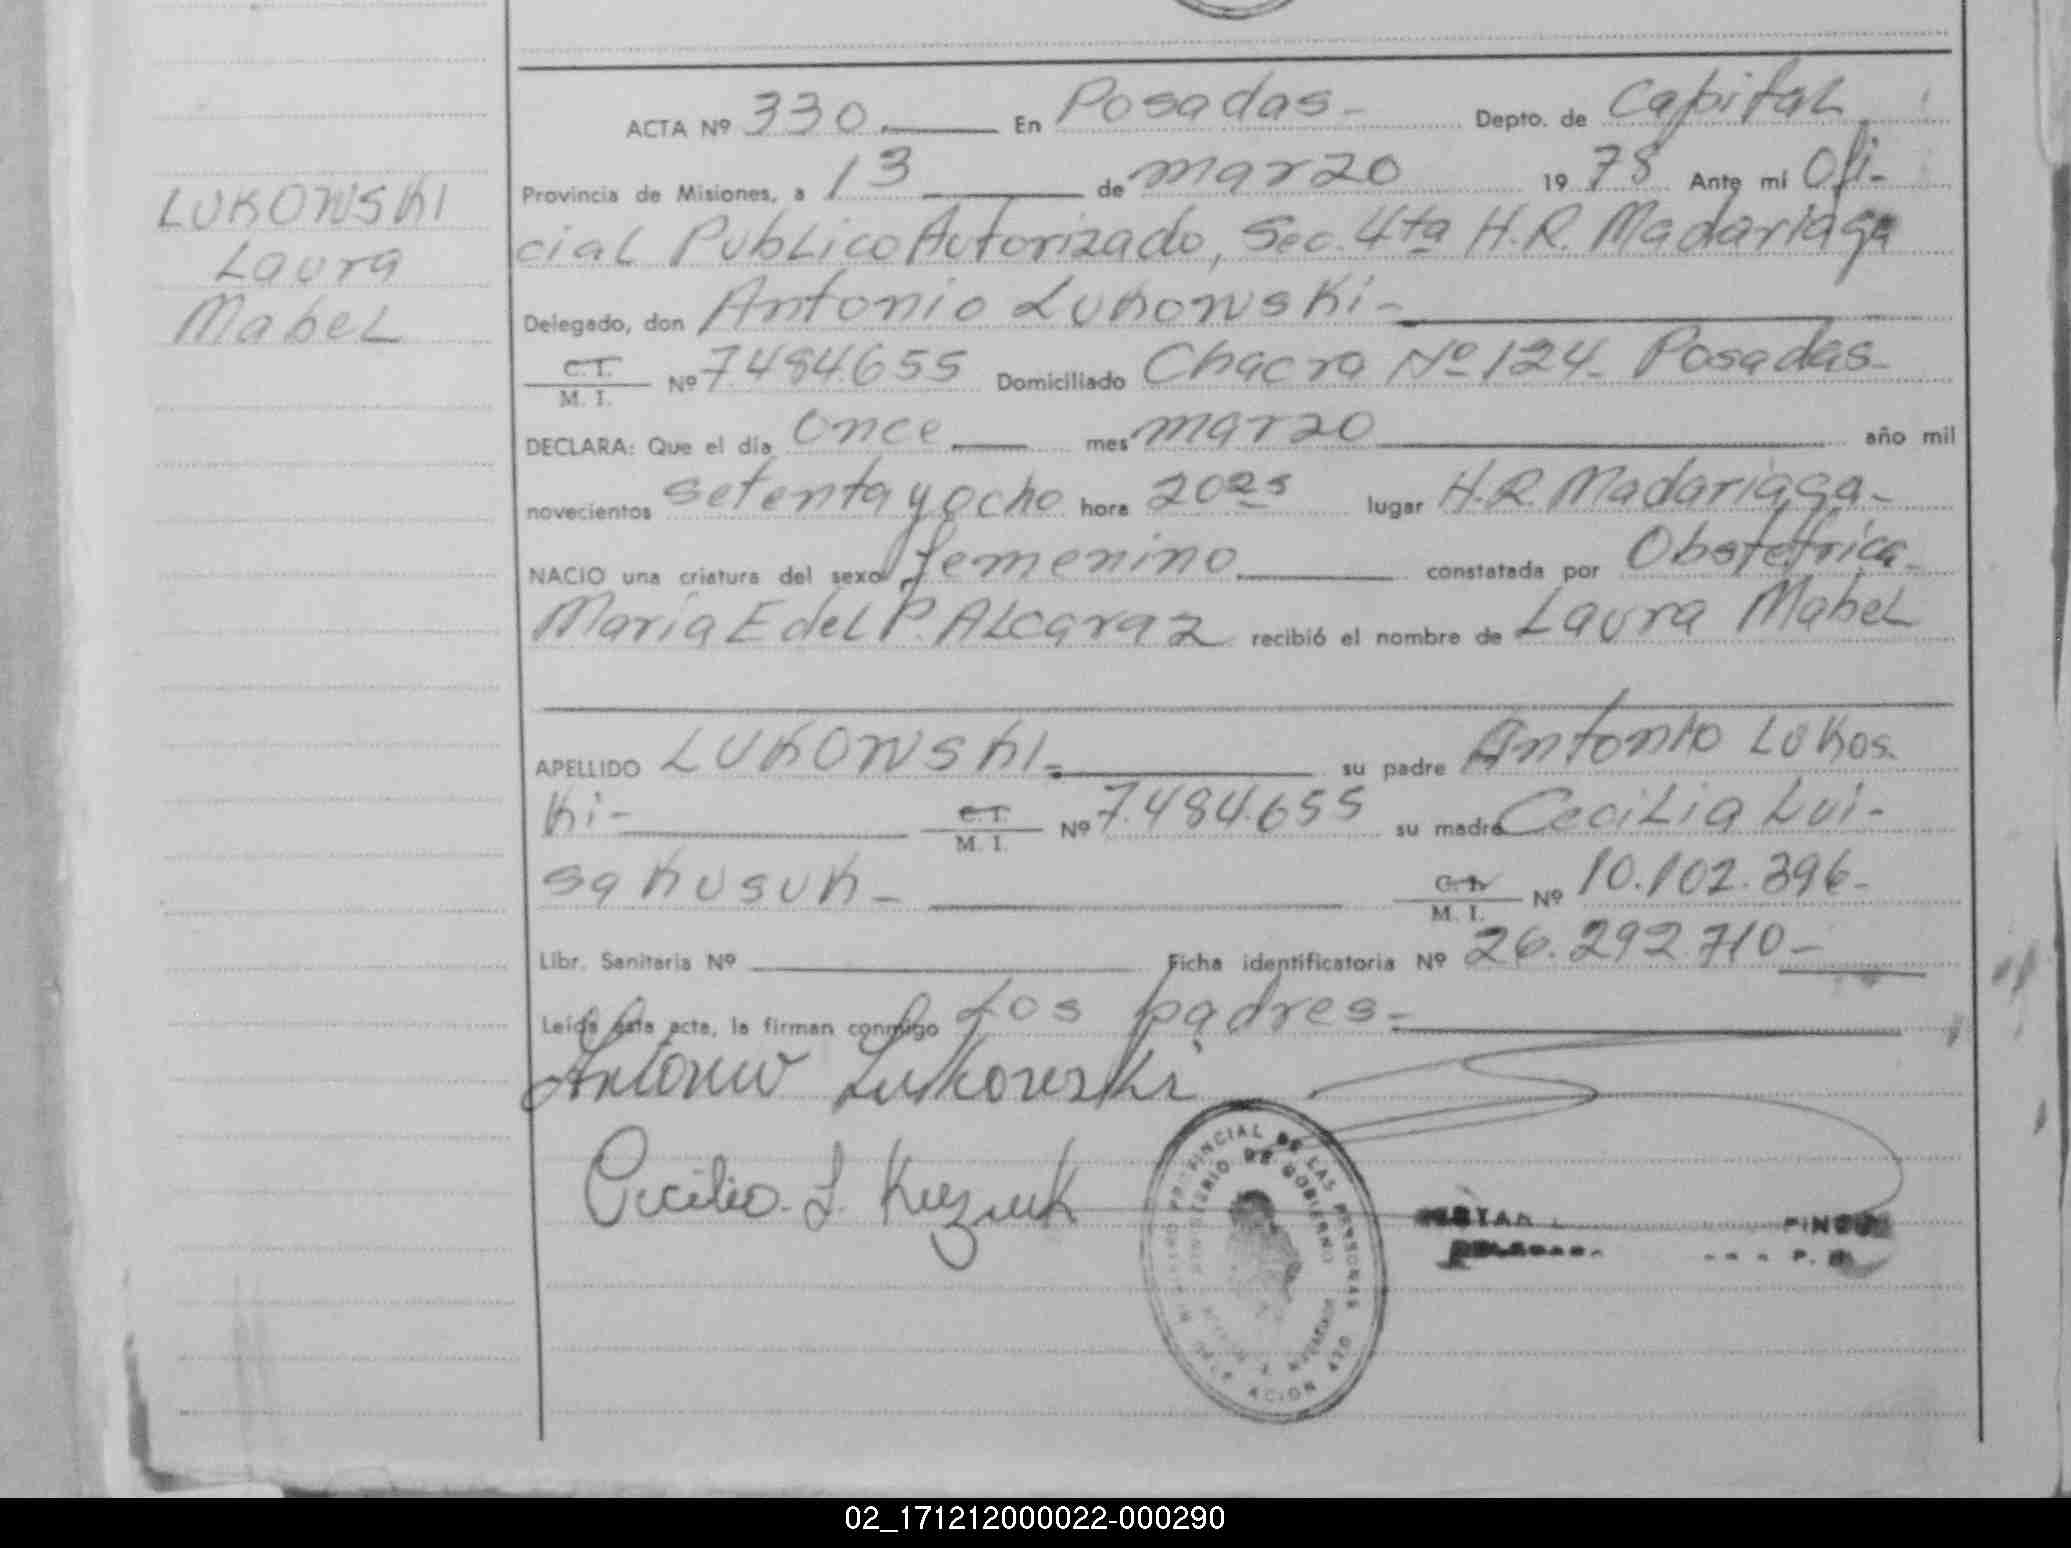 LUKOWSKI
Laura
Mabel
ACTA Nº 330. En Posadas- Depto. de Capital
Provincia de Misiones, a 13 de marzo 1978 Ante mí Ofi-
cial Publico Autorizado, Sec. 4ta H.R. Madariaga
Delegado, don Antonio Lukowski-
C.I.
M. I. Nº 7.484.655 Domiciliado Chacra Nº 124- Posadas-
DECLARA: Que el día once mes marzo año mil
novecientos setenta y ocho hora 20²⁵ lugar H.R. Madariaga-
NACIO una criatura del sexo femenino constatada por Obstetrica-
Maria E del P. Alcaraz recibió el nombre de Laura Mabel
APELLIDO LUKOWSKI- su padre Antonio Lukos.
ki- C.I.
M. I. Nº 7.484.655 su madre Cecilia Lui-
sa Kusuk- C.I.
M. I. Nº 10.102.396-
Libr. Sanitaria Nº Ficha identificatoria Nº 26.292.710-
Leída esta acta, la firman conmigo Los padres-
Antonio Lukowski
Cecilia L. Kuzuk
PROVINCIAL DE LAS PERSONAS
MINISTERIO DE GOBIERNO
02_171212000022-000290